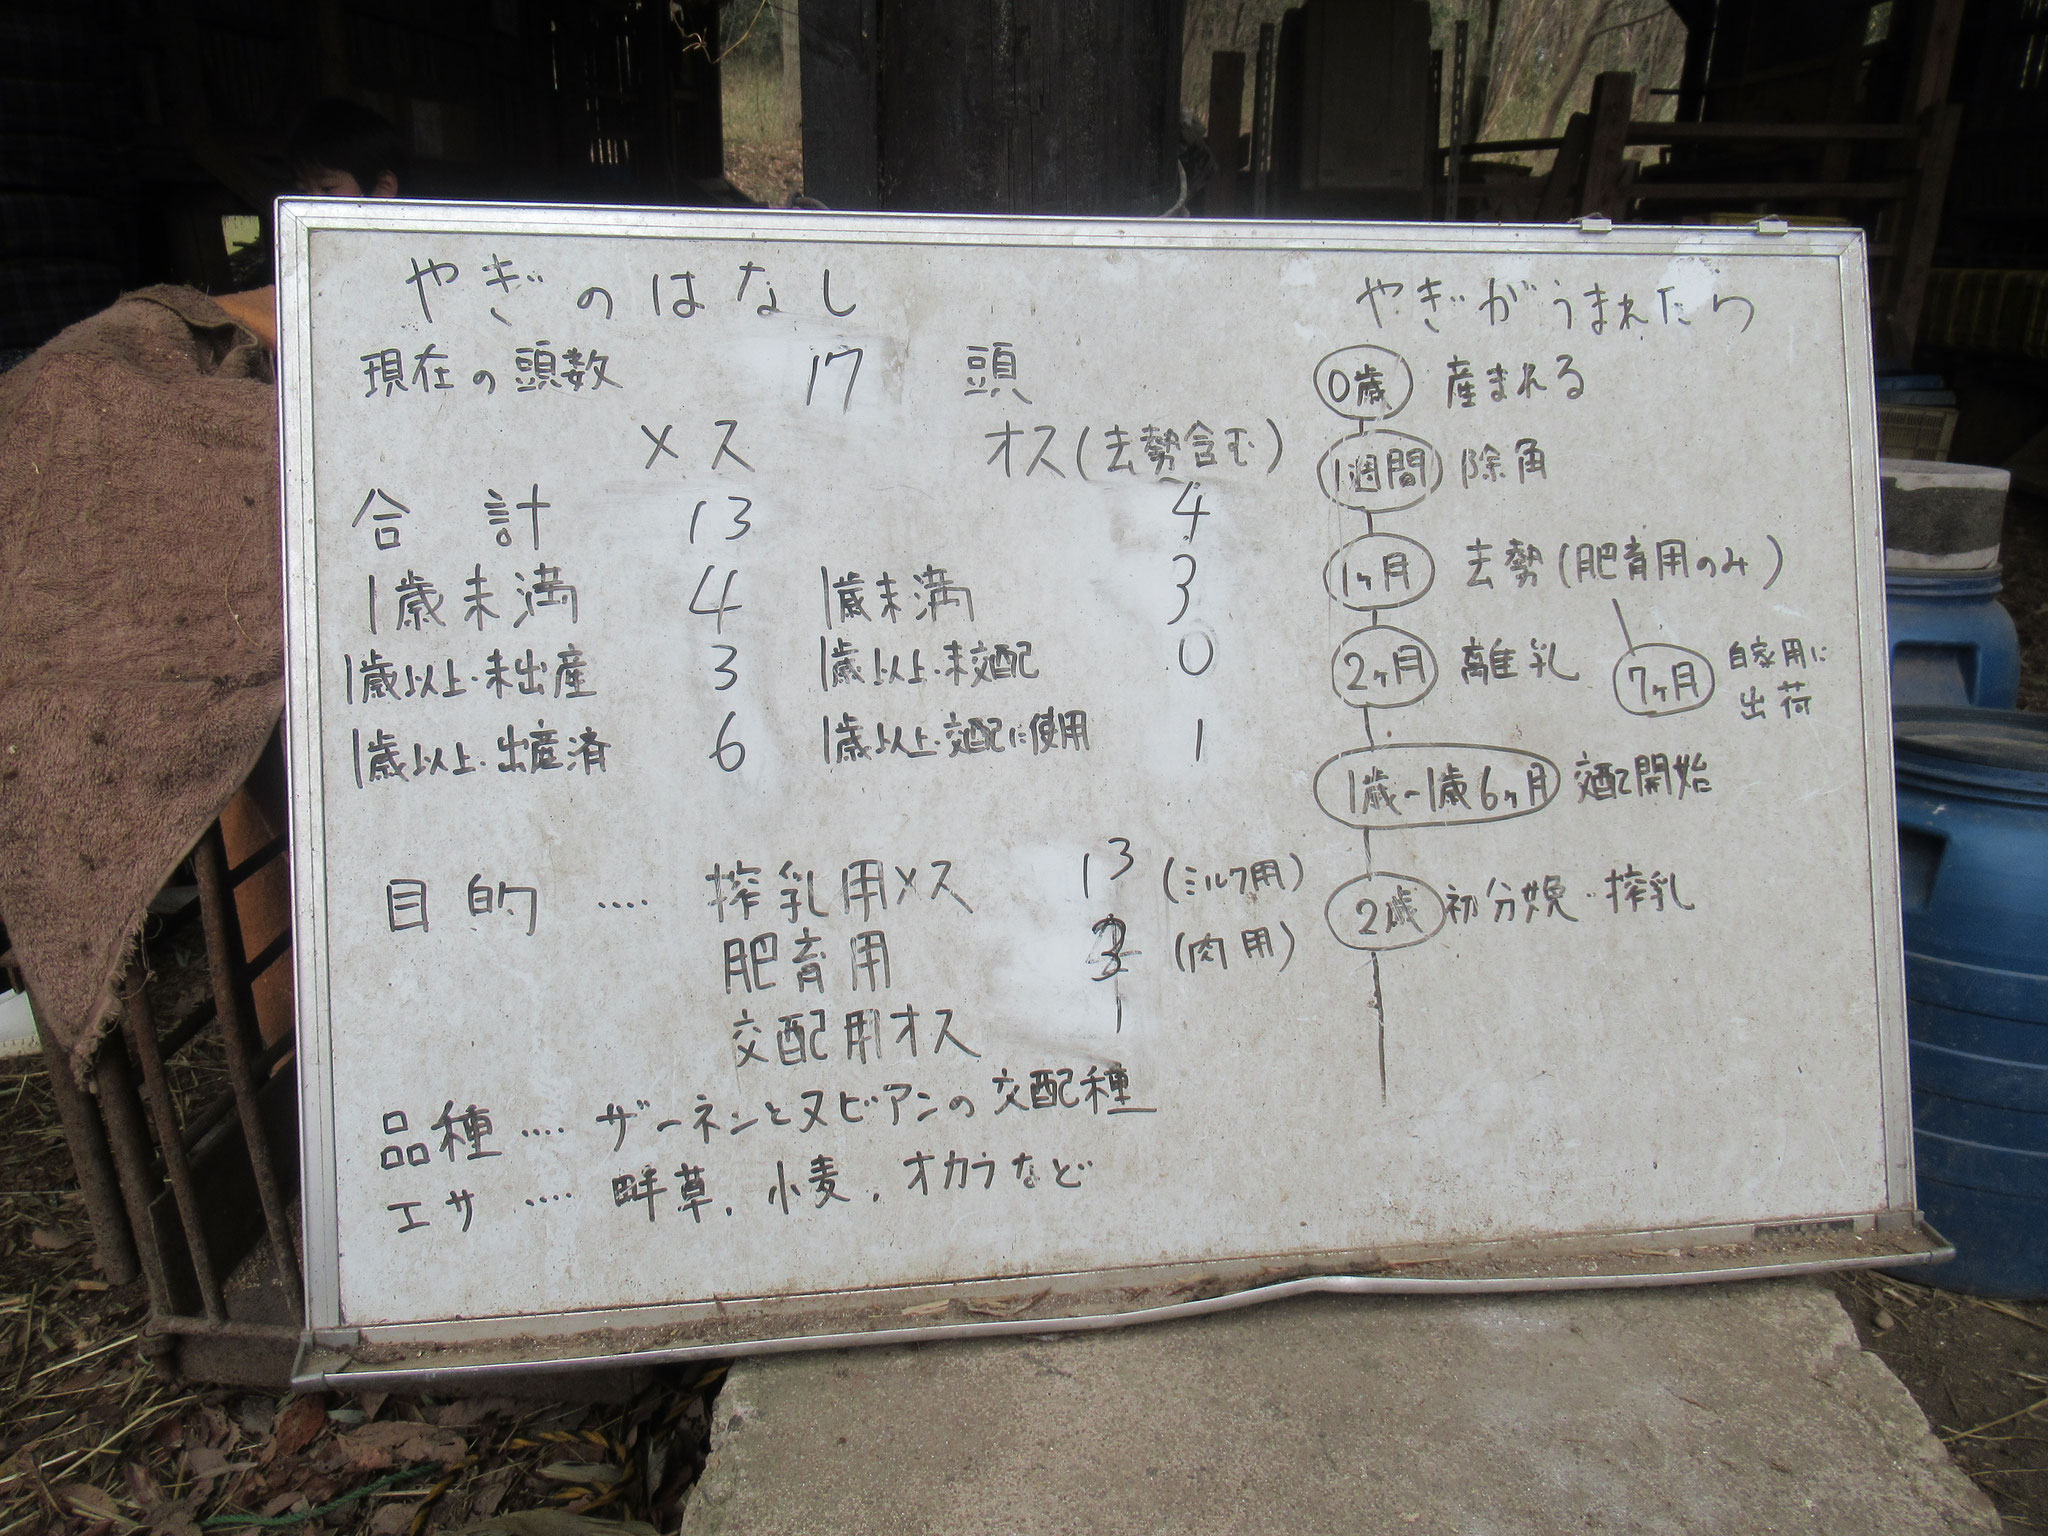 やぎのはなし
現在の頭数 17 頭
メス オス(去勢含む)
合計 13 4
1歳未満 4 1歳未満 3
1歳以上・未出産 3 1歳以上・未交配 0
1歳以上・出産済 6 1歳以上・交配に使用 1
目的 .... 搾乳用メス 13 (ミルク用)
肥育用 3 (肉用)
交配用オス 1
品種 .... ザーネンとヌビアンの交配種
エサ .... 畔草、小麦、オカラなど
やぎがうまれたら
0歳 産まれる
1週間 除角
1ヶ月 去勢(肥育用のみ)
2ヶ月 離乳
7ヶ月 自家用に
出荷
1歳~1歳6ヶ月 交配開始
2歳 初分娩・搾乳